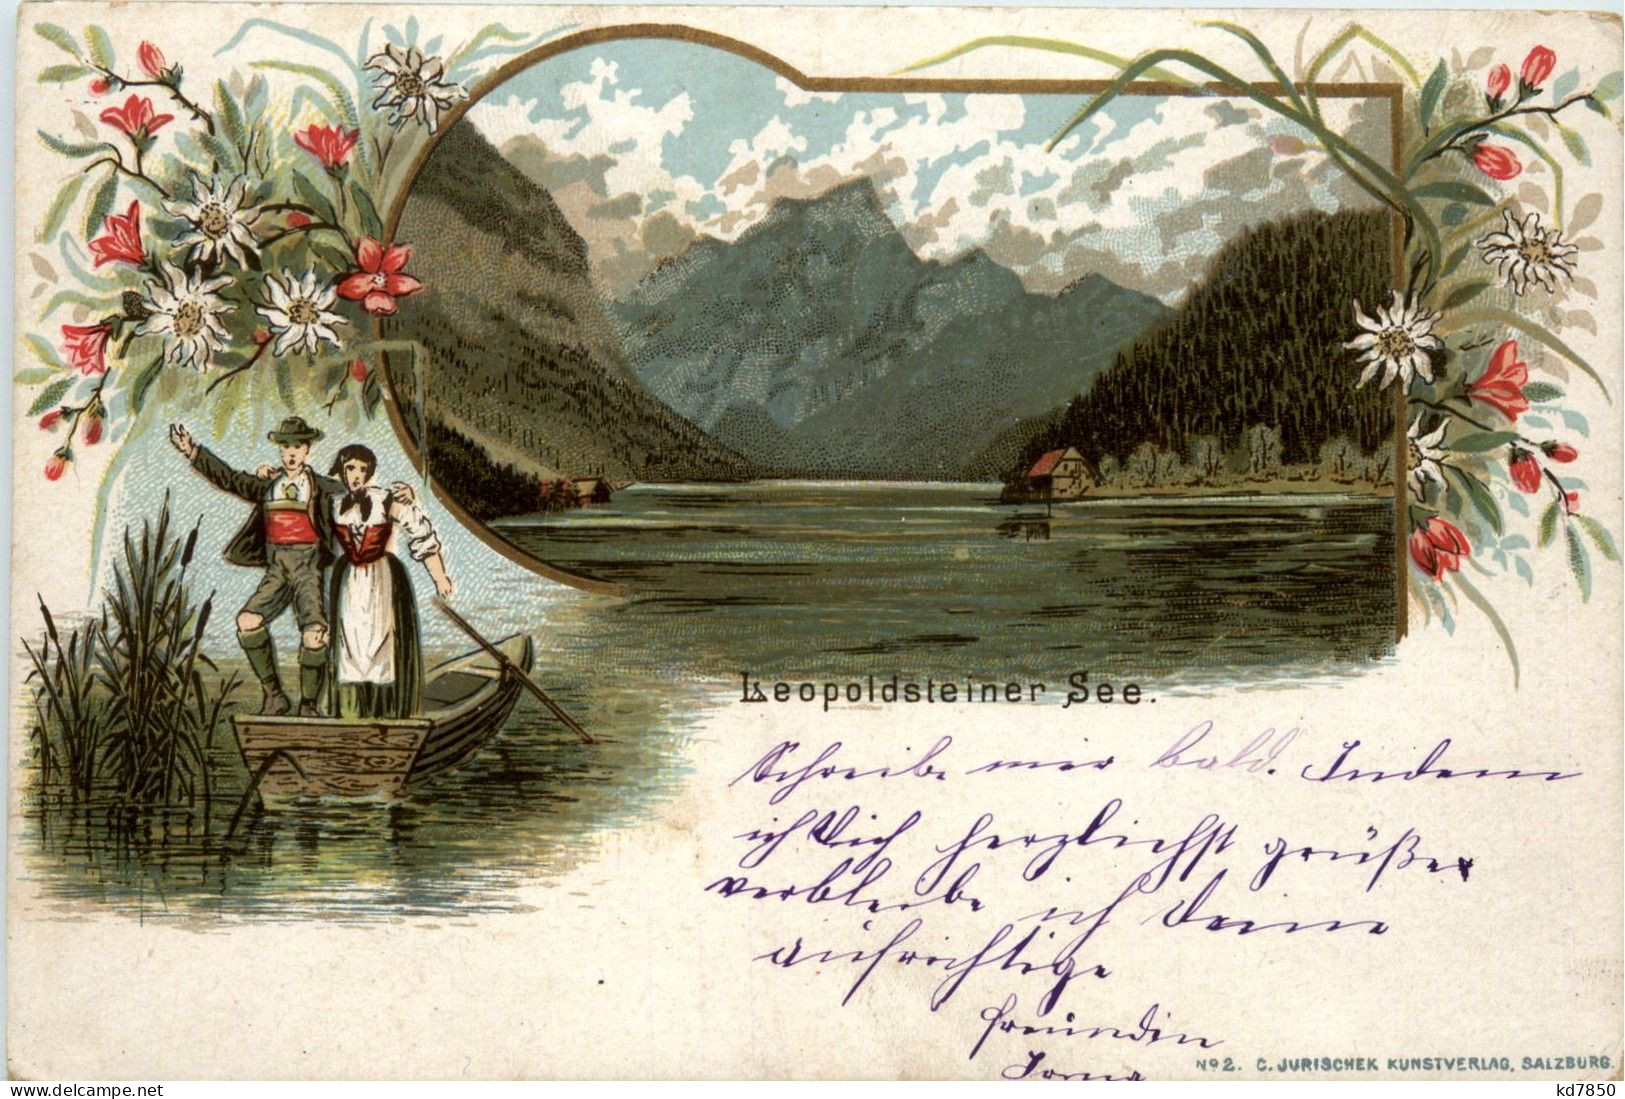 Leopoldsteiner See.
Schreibe mir bald. Indem
ich Dich herzlichst grüße
verbleibe ich Deine
aufrichtige
Freundin
No 2. C. JURISCHEK KUNSTVERLAG, SALZBURG.
www.delcampe.net
kd7850